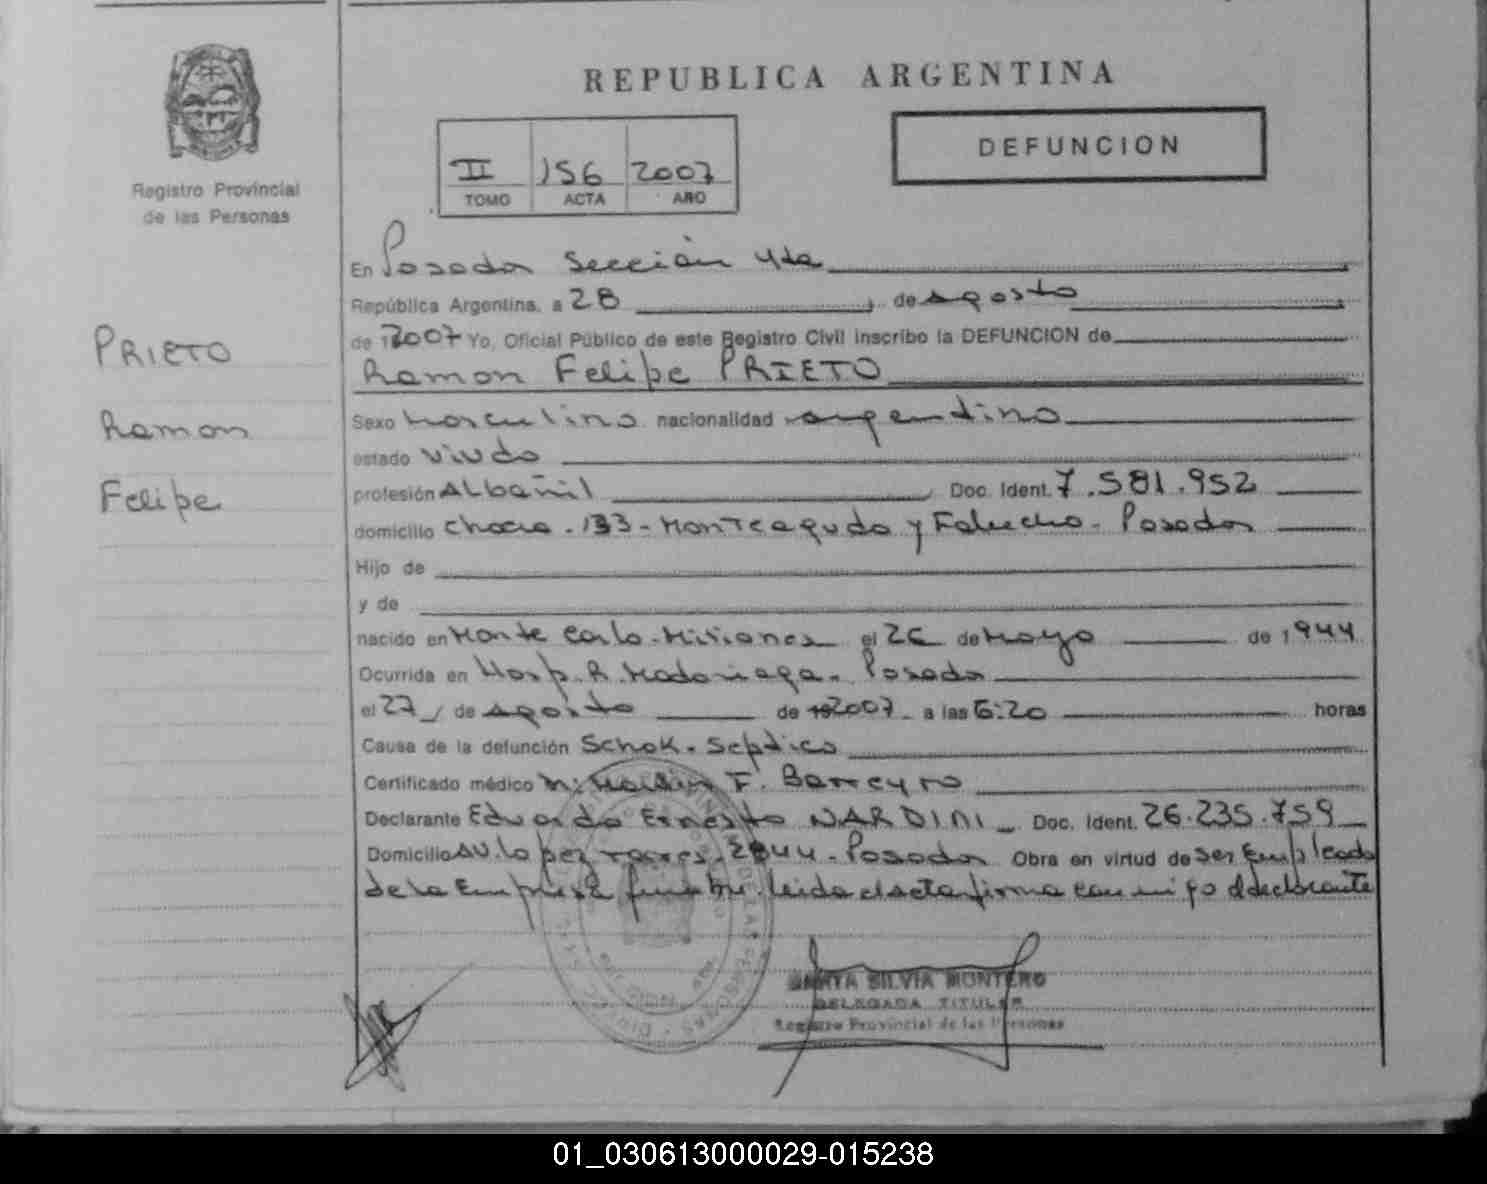 REPUBLICA ARGENTINA
DEFUNCION
II 156 2007
TOMO ACTA AÑO
Registro Provincial
de las Personas
PRIETO
Ramon
Felipe
En Posadas Sección 4ta
República Argentina, a 28 de agosto
de 2007 Yo, Oficial Público de este Registro Civil inscribo la DEFUNCION de
Ramon Felipe PRIETO
Sexo masculino nacionalidad argentino
estado viudo
profesión Albañil Doc. Ident. 7.581.952
domicilio chacra - 133 - Monteagudo y Falucho - Posadas
Hijo de
y de
nacido en Monte Carlo - Misiones el 26 de Mayo de 1944
Ocurrida en Hosp. R. Madariaga - Posadas
el 27 de agosto de 2007 - a las 6:20 horas
Causa de la defunción Schok - Septico
Certificado médico F. Barreyro
Declarante Eduardo Ernesto NARDINI Doc. Ident. 26.235.759
Domicilio AV. Lopez Torres - 2844 - Posadas Obra en virtud de ser Empleado
de la Empresa funebre leida el acta firma con migo el declarante
MARTA SILVIA MONTERO
DELEGADA TITULAR
Registro Provincial de las Personas
01_030613000029-015238